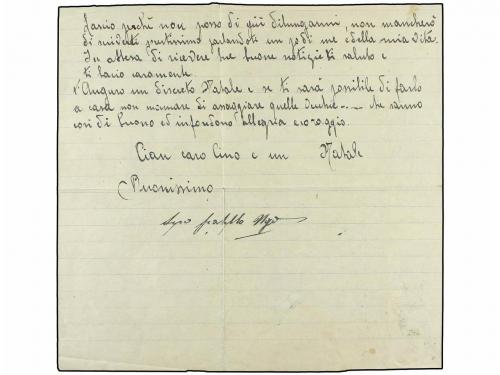 lascio perchè non posso di più dilungarmi, non mancherò
di scriverti prestissimo parlandoti un pò di me e della mia vita.
In attesa di ricevere tue buone notizie ti saluto e
ti bacio caramente.
T'Auguro un discreto Natale e se ti sarà possibile di farlo
a casa non mancare di assaggiare quelle che sanno
così di buono ed infondono allegria e coraggio.
Ciau caro Cino e un Natale
Buonissimo
tuo fratello Ugo